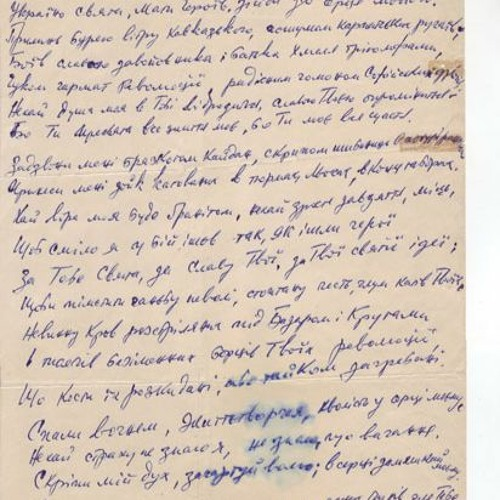 Україно свята, Мати Героїв, зійди до серця мого.
Прилинь бурею вітру Кавказького, шумом карпатських ручаїв,
Боїв славою завойовника і батька Хмеля тріюмфами,
гуком гармат Революції, радісним гомоном Софійських
Нехай душа моя в Тобі відродиться, славою Твоєю опромінить
Бо Ти Пресвята все життя моє, Бо Ти моє все щастя.
Задзвони мені брязкотом кайдан, скрипом шибениць
Принеси мені зойк катованих в тюрмах
Хай віра моя буде гранітом, нехай зрясте завзяття, міць,
Щоб сміло я у бій ішов так, як ішли герої
За Тебе Свята, за славу Твої, за Твої святії ідеї;
Щоби пімстити ганьбу неволі, стоптану честь, глум катів Твоїх
Невинну кров розстріляних під Базаром і Крутами
І тисячів безіменних борців Твоїх революцій
Що кости їх розкидані, або тайком загребані.
Спали вогнем, життєтворчим, кволість у серці моєму,
Нехай страху не знаю я, не знаю, що вагання.
Скріпи мій дух, загартуй волю; в серці замешкай